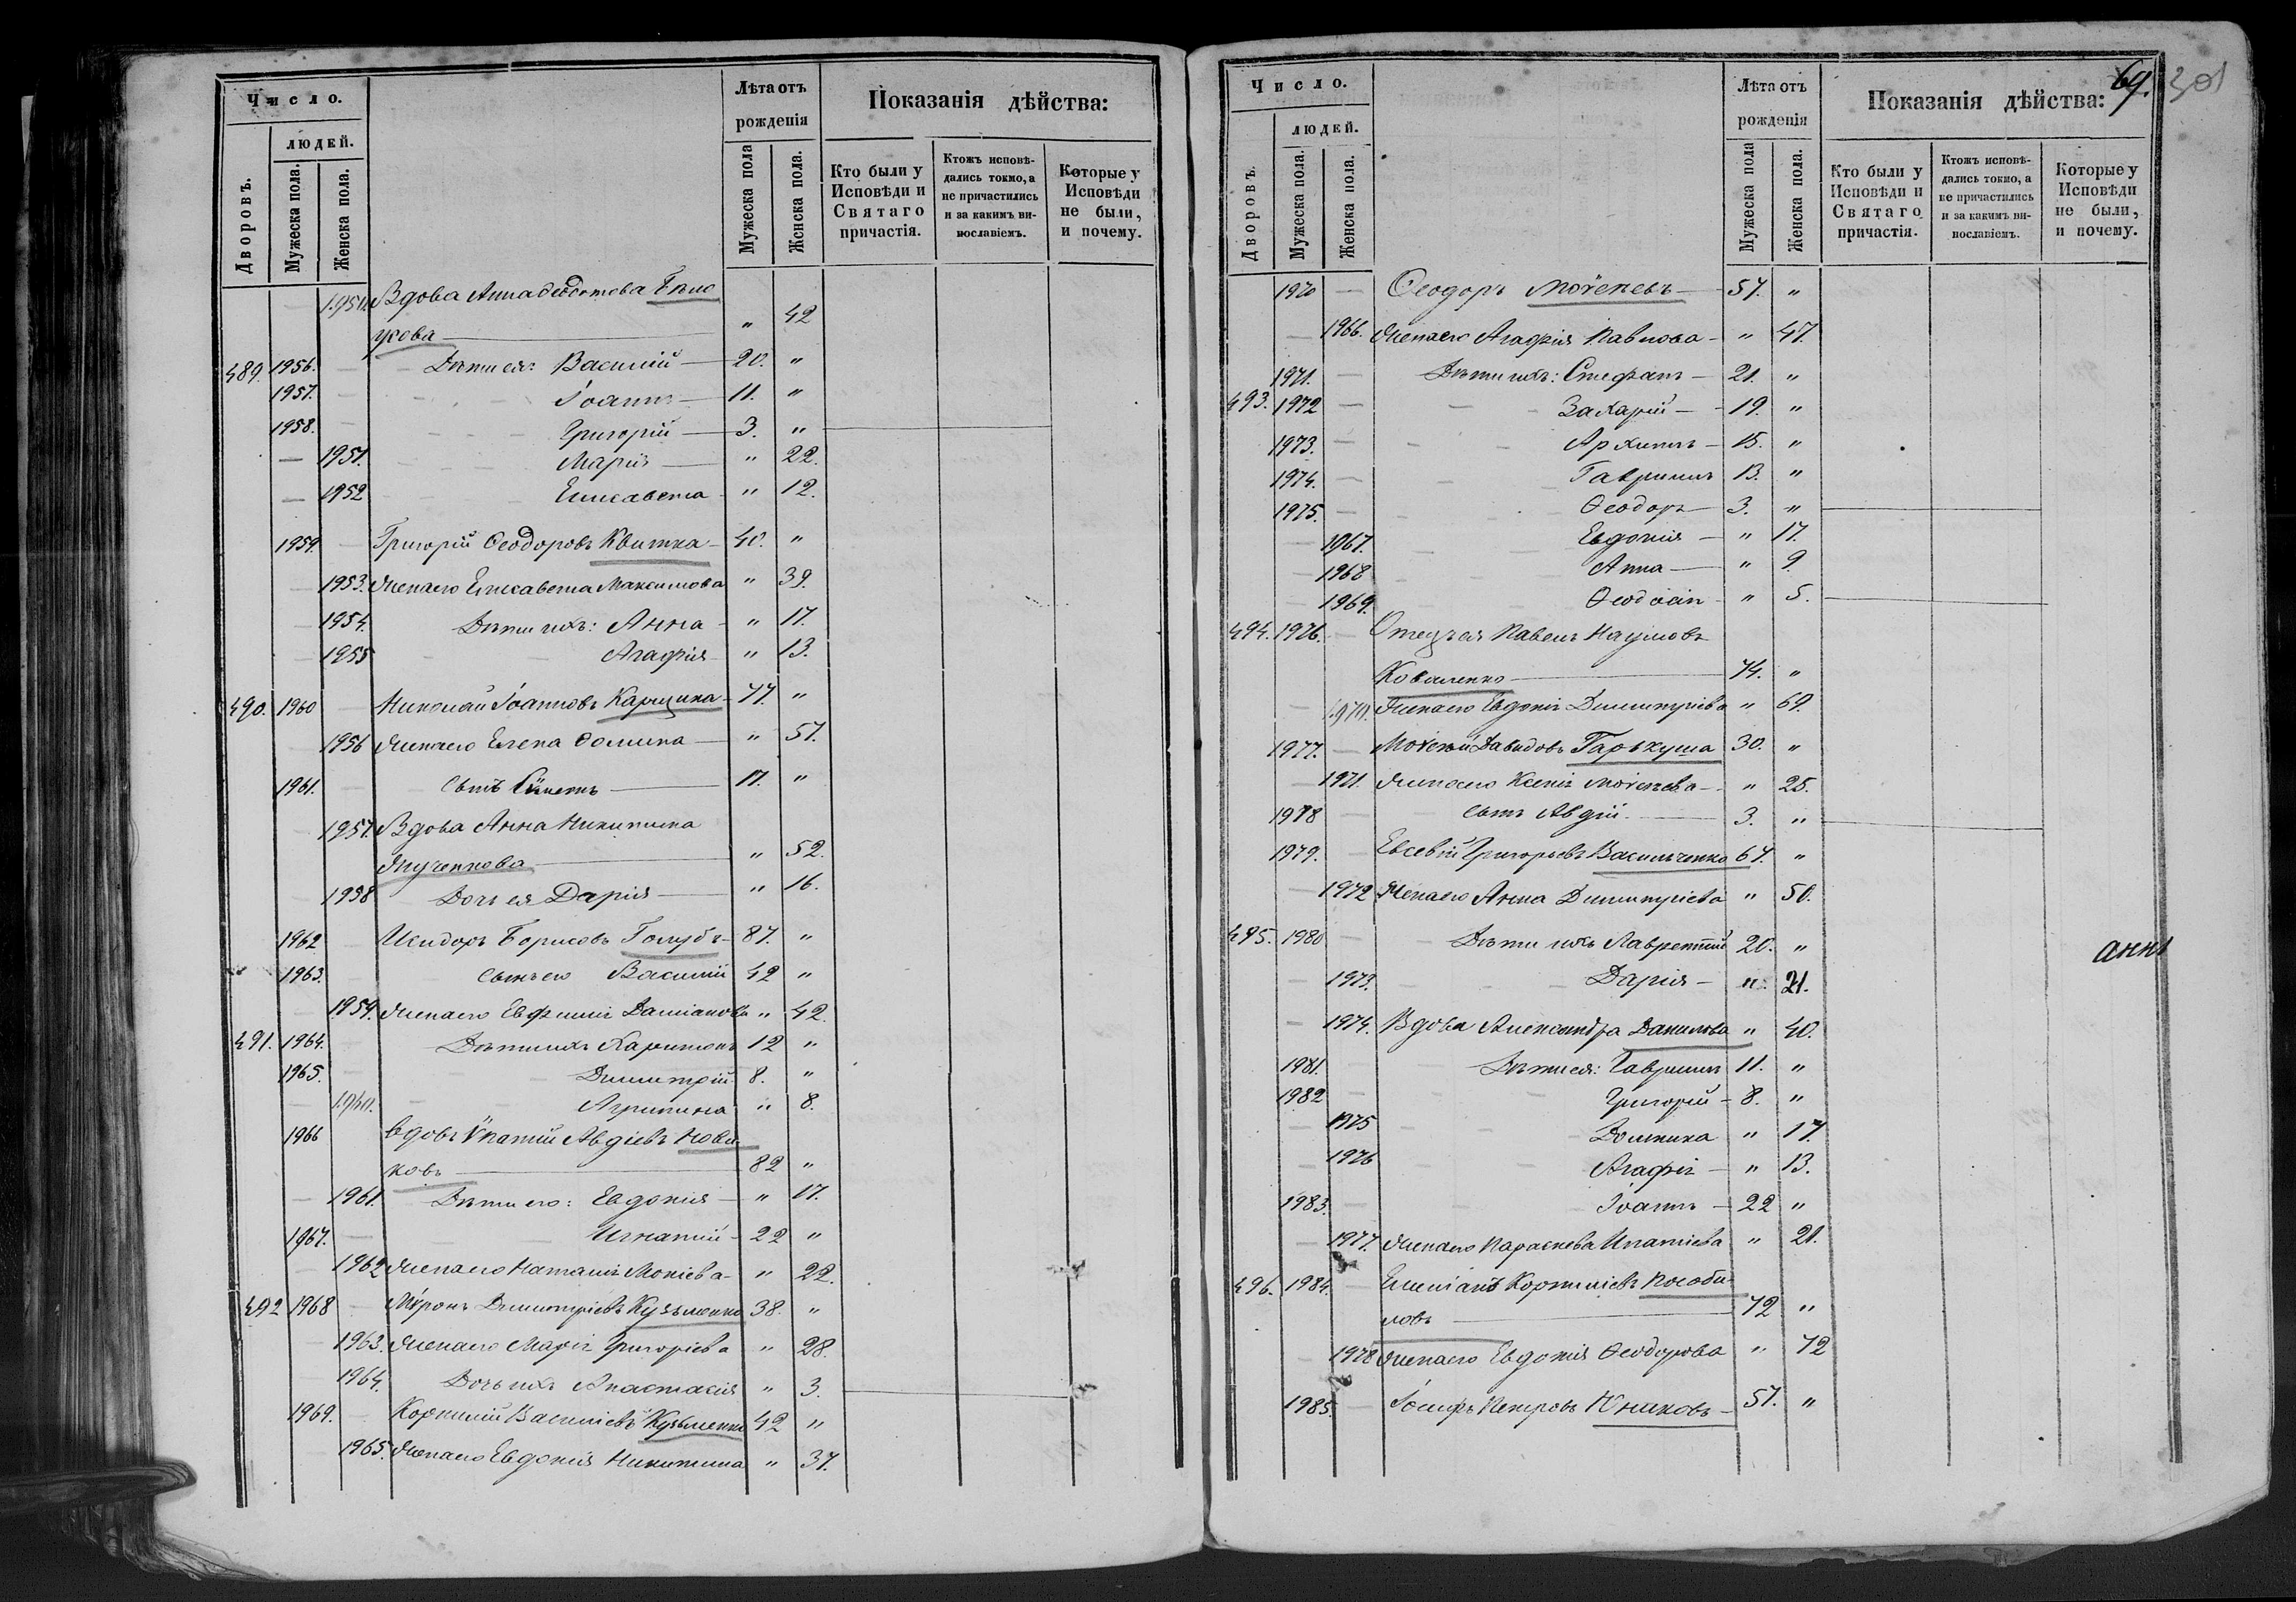 Число.
Лѣта отъ рожденія
Показанія дѣйства:
людей.
Дворовъ.
Мужеска пола.
Женска пола.
Мужеска пола
Женска пола.
Кто были у Исповѣди и Святаго причастія.
Ктожъ исповѣдались токмо, а не причастились и за какимъ винословіемъ.
Которые у Исповѣди не были, и почему.
Вдова Анна Ѳеодотова
кова — " 42
489. 1956. — Дѣти ея: Василій — 20. "
1957. — Іоаннъ — 11. "
1958. — Григорій — 3. "
— 1951. Марія — " 22.
— 1952 Елисавета " 12.
1959. — Григорій Ѳеодоровъ Квитка — 40. "
— 1953. Жена его Елисавета Максимова " 39.
— 1954. Дѣти ихъ: Анна — " 17.
— 1955 Агафія — " 13.
490. 1960 — Николай Іоанновъ Карцина — 77. "
— 1956 Жена его Елена Ѳомина — " 57.
1961. — Сынъ — 17. "
— 1957. Вдова Анна Никитина
— " 52.
— 1958 Дочь ея Дарія — " 16.
1962 — Исидоръ Борисовъ Голубъ — 87. "
1963. — Сынъ его Василій 42 "
— 1959. Жена его Евфимія Даміанова " 42.
491. 1964. — Дѣти ихъ Харитонъ 12 "
1965. — Димитрій 8. "
— 1960. Агрипина " 8.
1966 вдовъ Ѵпатій Авдіевъ Нови
ковъ — 82 "
— 1961. Дѣти его: Евдокія — " 17.
1967. — Игнатій — 22 "
— 1962 Жена его Наталія Мокіева — " 22.
492 1968 — Мѵронъ Димитріевъ Кузьменко 38. "
— 1963. Жена его Марія Григоріева " 28.
1964. Дочь ихъ Анастасія " 3.
1969. — Корнилій Василіевъ Кузьменко 42 "
1965. Жена его Евдокія Никитина " 37.
69. 301
Число.
Лѣта отъ рожденія
Показанія дѣйства:
людей.
Дворовъ.
Мужеска пола.
Женска пола.
Мужеска пола
Женска пола.
Кто были у Исповѣди и Святаго причастія.
Ктожъ исповѣдались токмо, а не причастились и за какимъ винословіемъ.
Которые у Исповѣди не были, и почему.
1970 — Ѳеодоръ Моѵсеевъ — 57. "
— 1966. Жена его Агафія Павлова — " 47.
1971. — Дѣти ихъ: Стефанъ — 21. "
493. 1972 — Захарій — 19. "
1973. — Архипъ — 15. "
1974. — Гавріилъ 13. "
1975. — Ѳеодоръ 3. "
— 1967. Евдокія — " 17.
— 1968 Анна — " 9.
— 1969. Ѳеодосія — " 5.
494. 1976. — Отецъ ея Павелъ Наумовъ
Коваленко — 74. "
— 1970. Жена его Евдокія Димитріева " 69.
1977. — Моѵсей Давидовъ Гарькуша 30. "
— 1971. Жена его Ксенія Моѵсеева — " 25.
1978 — Сынъ Авдій. — 3. "
1979. — Евсевій Григорьевъ Васильченко 67. "
— 1972 Жена его Анна Димитріева " 50.
495. 1980 — Дѣти ихъ Лаврентій 20. "
— 1973. Дарія — " 21.
анна
— 1974. Вдова Александра Данилова " 40.
1981. — Дѣти ея: Гавріилъ 11. "
1982 — Григорій — 8. "
— 1975 Домника " 17.
— 1976 Агафія — " 13.
1983. — Іоаннъ — 22 "
— 1977. Жена его Параскева Ипатіева " 21.
496. 1984. — Емиліанъ Корниліевъ Пособи
ловъ — 72 "
— 1978 Жена его Евдокія Ѳеодорова " 72
1985. — Іосифъ Петровъ Юнаковъ — 57. "